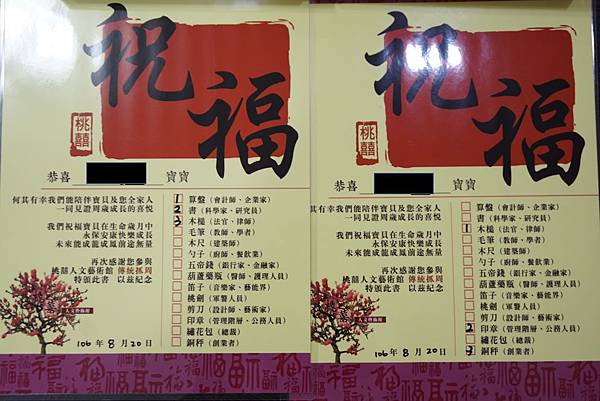 祝福
桃囍
恭喜 寶寶
何其有幸我們能陪伴寶貝及您全家人
一同見證周歲成長的喜悅
我們祝福寶貝在生命歲月中
永保安康快樂成長
未來能成龍成鳳前途無量
再次感謝您參與
桃囍人文藝術館 傳統抓周
特頒此書 以茲紀念
人文藝術館
1 算盤 (會計師、企業家)
2 書 (科學家、研究員)
3 木槌 (法官、律師)
毛筆 (教師、學者)
木尺 (建築師)
勺子 (廚師、餐飲業)
五帝錢 (銀行家、金融家)
葫蘆藥瓶 (醫師、護理人員)
笛子 (音樂家、藝能界)
桃劍 (軍警人員)
剪刀 (設計師、藝術家)
印章 (管理階層、公務人員)
繡花包 (總裁)
銅秤 (創業者)
106 年 8 月 20 日
祝福
桃囍
恭喜 寶寶
其有幸我們能陪伴寶貝及您全家人
一同見證周歲成長的喜悅
我們祝福寶貝在生命歲月中
永保安康快樂成長
未來能成龍成鳳前途無量
再次感謝您參與
桃囍人文藝術館 傳統抓周
特頒此書 以茲紀念
人文藝術館
算盤 (會計師、企業家)
書 (科學家、研究員)
1 木槌 (法官、律師)
毛筆 (教師、學者)
木尺 (建築師)
勺子 (廚師、餐飲業)
五帝錢 (銀行家、金融家)
葫蘆藥瓶 (醫師、護理人員)
笛子 (音樂家、藝能界)
桃劍 (軍警人員)
剪刀 (設計師、藝術家)
2 印章 (管理階層、公務人員)
繡花包 (總裁)
3 銅秤 (創業者)
106 年 8 月 20 日